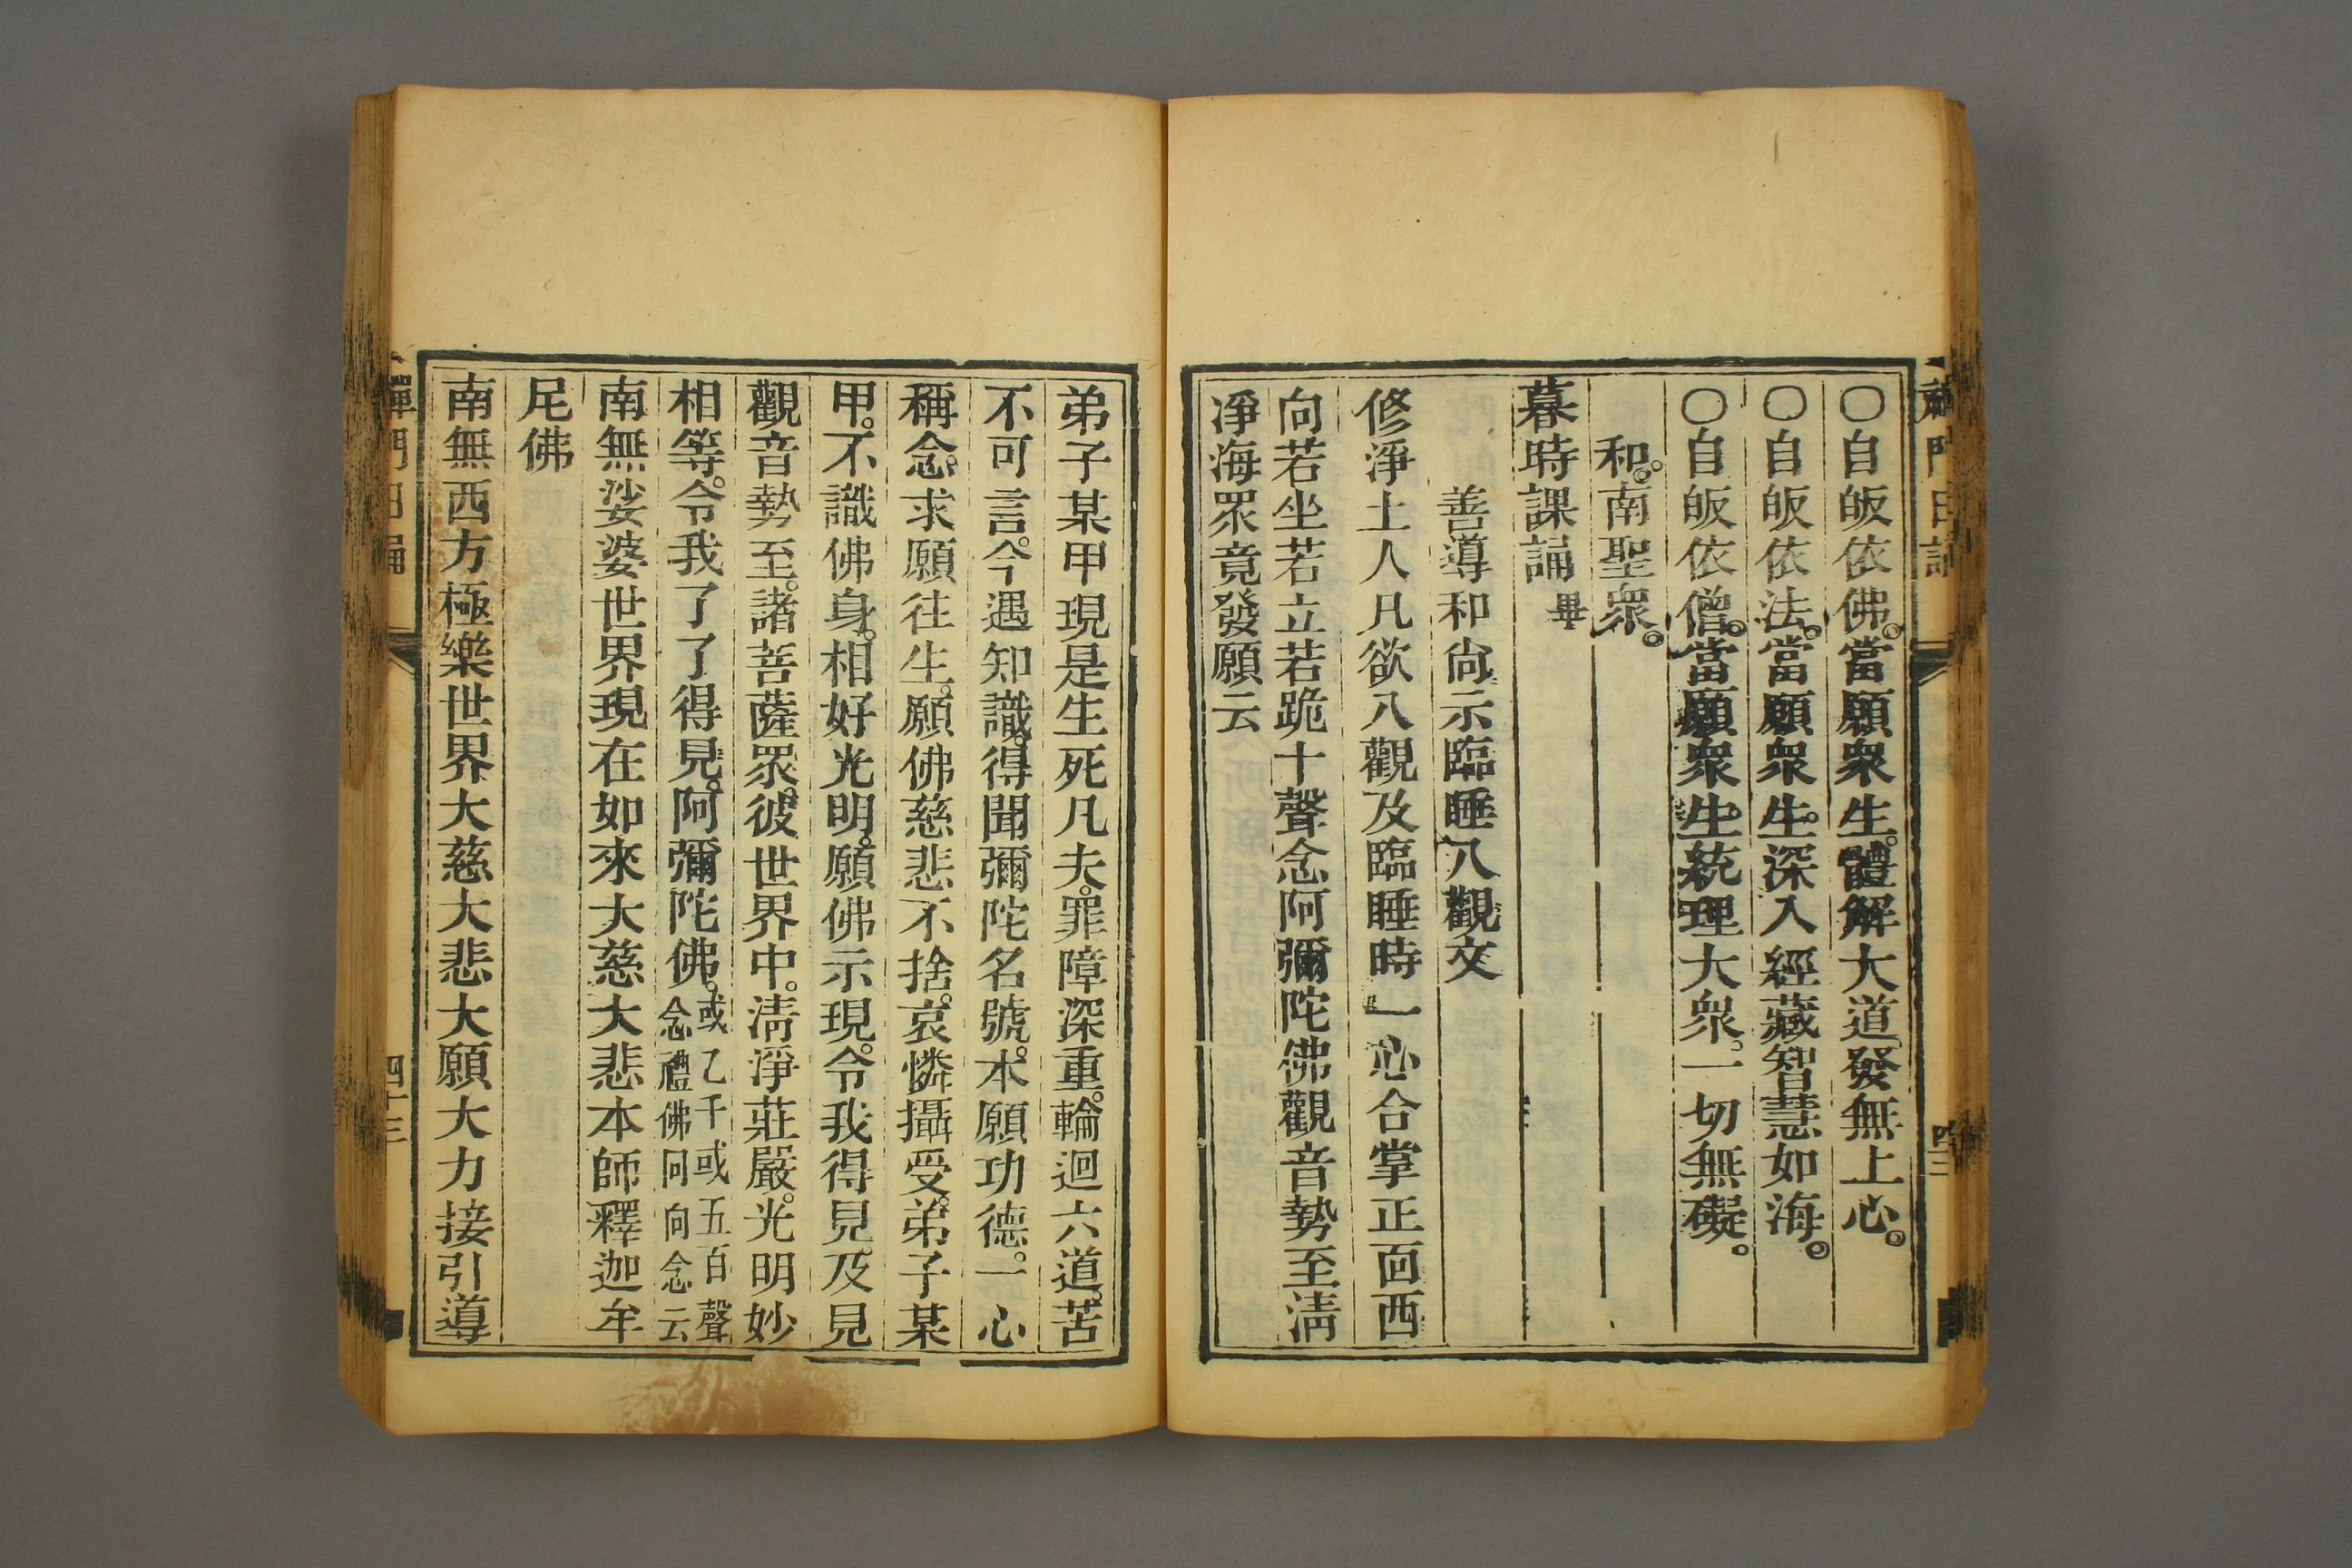 禪門日誦
四十二
〇自皈依佛。當願衆生。體解大道發無上心。
〇自皈依法。當願衆生。深入經藏智慧如海。
〇自皈依僧。當願衆生。統理大衆。一切無礙。
和。南聖衆。
暮時課誦畢
善導和尙示臨睡入觀文
修淨土人凡欲入觀及臨睡時一心合掌正面西
向若坐若立若跪十聲念阿彌陀佛觀音勢至淸
淨海眾竟發願云
弟子某甲現是生死凡夫。罪障深重。輪迴六道。苦
不可言。今遇知識。得聞彌陀名號。本願功德。一心
稱念。求願往生。願佛慈悲不捨。哀憐攝受。弟子某
甲。不識佛身。相好光明。願佛示現。令我得見。及見
觀音勢至。諸菩薩眾。彼世界中。淸淨莊嚴。光明妙
相等。令我了了得見。阿彌陀佛。或乙千或五百聲
念禮佛同向念云
南無娑婆世界現在如來大慈大悲本師釋迦牟
尼佛
南無西方極樂世界大慈大悲大願大力接引導
禪門日誦
四十三